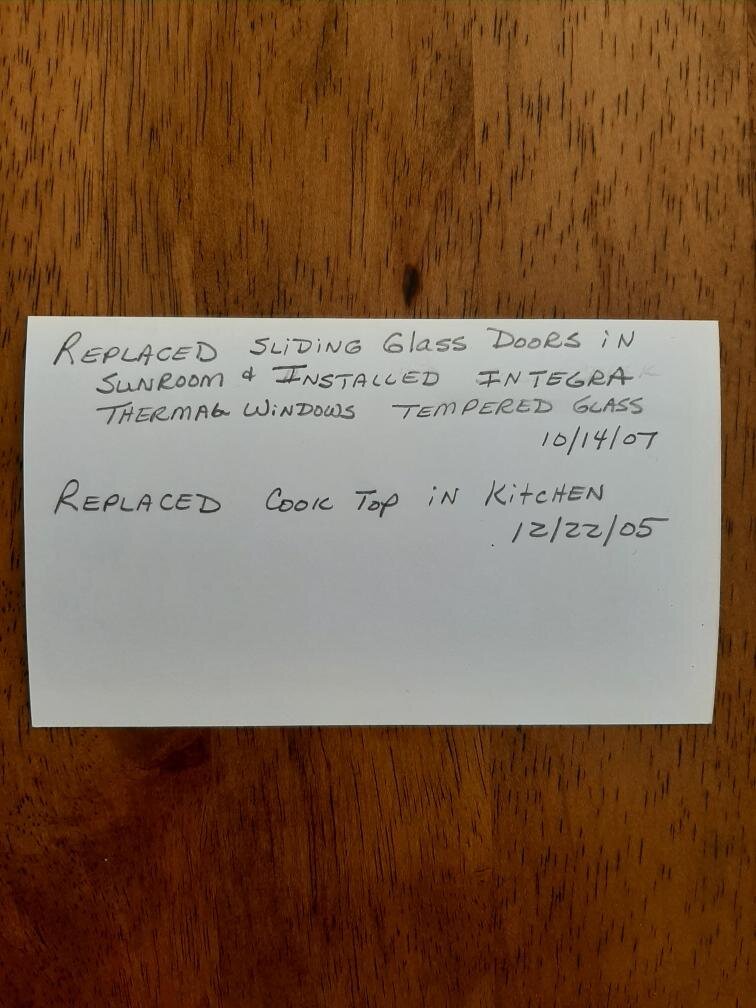 REPLACED SLIDING Glass DOORS IN
SUNROOM & INSTALLED INTEGRA
THERMAL WINDOWS TEMPERED GLASS
10/14/07
REPLACED COOK TOP IN KITCHEN
12/22/05